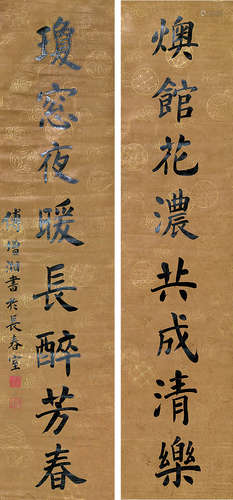 燠館花濃共成清樂
瓊窓夜暖長醉芳春
傅增湘書於長春室